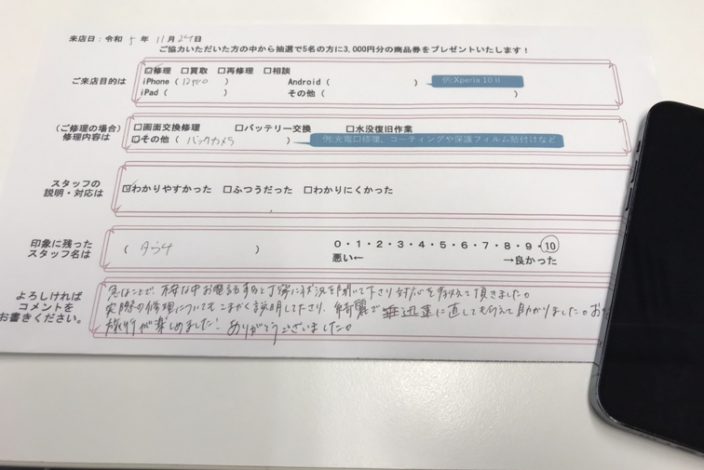 来店日：令和 5 年 11 月 24 日
ご協力いただいた方の中から抽選で5名の方に3,000円分の商品券をプレゼントいたします！
ご来店目的は
☑修理 □買取 □再修理 □相談
iPhone（ 12pro ） Android（ ） 例:Xperia 10 II
iPad（ ） その他（ ）
（ご修理の場合）
修理内容は
□画面交換修理 □バッテリー交換 □水没復旧作業
☑その他（ バックカメラ ） 例:充電口修理、コーティングや保護フィルム貼付けなど
スタッフの
説明・対応は
☑わかりやすかった □ふつうだった □わかりにくかった
印象に残った
スタッフ名は
（ ） 0・1・2・3・4・5・6・7・8・9・10
悪い← →良かった
よろしければ
コメントを
お書きください。
お電話すると丁寧に状況を聞いて下さり対応を教えて頂きました。
実際の修理についてもこまかく説明して下さり、綺麗で迅速に直してもらえて助かりました。
旅行が楽しめました！ありがとうございました。